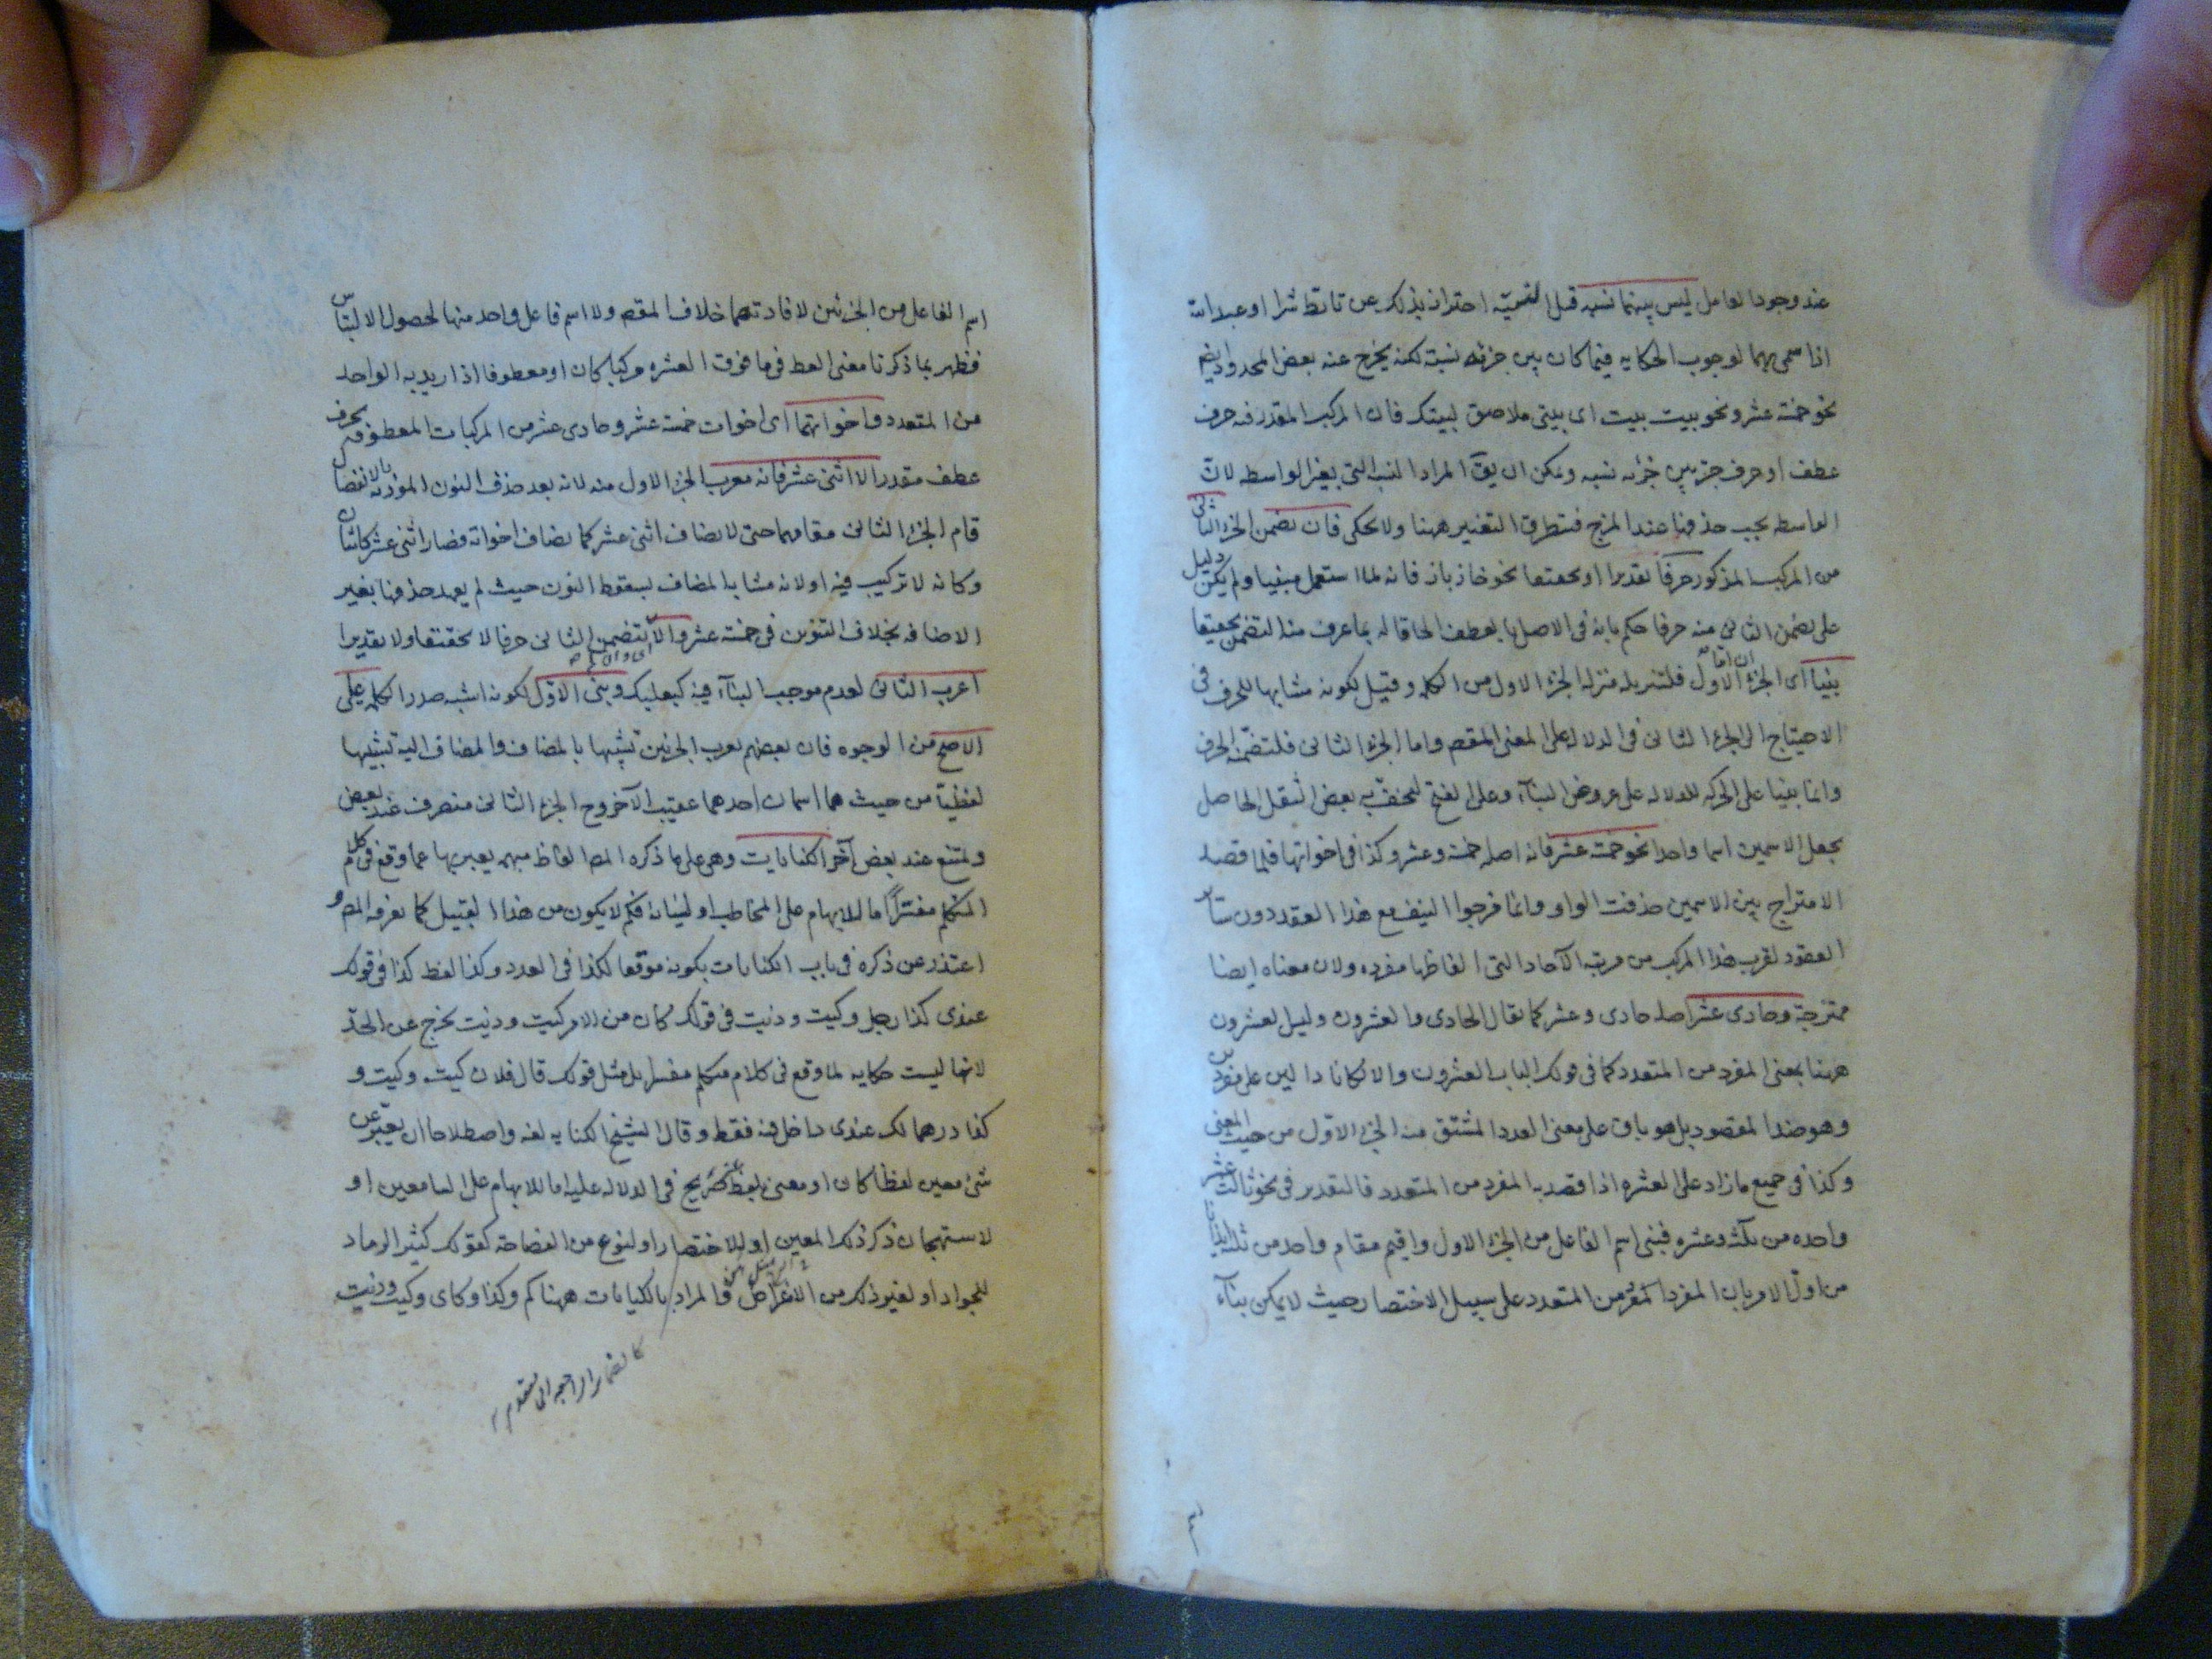 عند وجود العامل ليس بينهما نسبه قبل التسميه احترازا بذلك عن تابط شرا او عبد الله
اذا سمى بهما لوجوب الحكايه فيما كان بين جزئيه نسبة لكنه يخرج عنه بعض المحدود ايضا
نحو خمسة عشر ونحو بيت بيت اى بيتى ملاصق لبيتك فان المركب المقدر فيه حرف
عطف او حرف جر بين جزئيه نسبه ويمكن ان يق المراد النسبه التى بغير الواسطه لان
الواسطه يجب حذفها عند المزج فيتطرق التغير ههنا ولا يحكى فان تضمن الجزء الثانى
من المركب المذكور حرفا تقديرا او تحقيقا نحو خاز باز فانه لما استعمل مبنيا ولم يكن دليل
على تضمن الثانى منه حرفا حكم بانه فى الاصل بالعطف الحاقا له بما عرف منه التضمن تحقيقا
بنيا اى الجزء الاول فلتنزيله منزلة الجزء الاول من الكلمه وقيل لكونه مشابها للحرف فى
الاحتياج الى الجزء الثانى فى الدلاله على المعنى المقصو واما الجزء الثانى فلتضمنه الحرف
وانما بنيا على الحركه للدلاله على عروض البناء وعلى الفتح ليخف به بعض الثقل الحاصل
بجعل الاسمين اسما واحدا نحو خمسة عشر فانه اصله خمسة وعشر وكذا فى اخواتها فلما قصد
الامتزاج بين الاسمين حذفت الواو وانما مزجوا النيف مع هذا العقد دون سائر
العقود لقرب هذا المركب من مرتبة الآحاد التى الفاظها مفرده ولان معناه ايضا
ممتزجة وحادى عشر اصله حادى وعشر كما يقال الحادى والعشرون وليس العشرون
ههنا بمعنى المفرد من المتعدد كما فى قولك الباب العشرون والا لكانا دالين على مفردين
وهو ضد المقصود بل هو باق على معنى العدد المشتق منه الجزء الاول من حيث المعنى
وكذا فى جميع ما زاد على العشره اذا قصد به المفرد من المتعدد فالتقدير فى نحو ثالث عشر
واحد من ثلثه وعشره فبنى اسم الفاعل من الجزء الاول واقيم مقام واحد من ثلثه
من اول الامر بان المفرد المفرد من المتعدد على سبيل الاختصار حيث لا يمكن بناء
اسم الفاعل من الجزئين لافادتهما خلاف المقصو ولا اسم فاعل واحد منها لحصول الالتباس
فظهر بما ذكرنا معنى العطف فى ما فوق العشره مركبا كان او معطوفا اذا اريد به الواحد
من المتعدد واخواتهما اى اخوات خمسة عشر وحادى عشر من المركبات المعطوفه بحرف
عطف مقدر الا اثنى عشر فانه معرب الجزء الاول منه لانه بعد حذف النون الموذنه بالانفصال
قام الجزء الثانى مقامها حتى لا يضاف اثنى عشر كما يضاف اخواته فصار اثنى عشر كاثنان
وكانه لا تركيب فيه او لانه مشابه المضاف لسقوط النون حيث لم يعهد حذفها بغير
الاضافه بخلاف التنوين فى خمسة عشر والا يتضمن الثانى حرفا لا تحقيقا ولا تقديرا
اعرب الثانى لعدم موجب البناء فيه كبعلبك وبنى الاول لكونه اشبه صدر الكلمه على
الاصح من الوجوه فان بعضهم يعرب الجزئين تشبيها بالمضاف والمضاف اليه تشبيها
لفظيا من حيث هما اسمان احدهما عقيب الآخر وح الجزء الثانى منصرف عند بعض
وممتنع عند بعض آخر الكنايات وهى على ما ذكره المص الفاظ مبهمه يعبر بها عما وقع فى كلام
المتكلم مفسرا اما للابهام على المخاطب او لنسيانه فكم لا يكون من هذا القبيل كما عرفه المص و
اعتذر عن ذكره فى باب الكنايات بكونه موقعا لكذا فى العدد وكذا لفظ كذا فى قولك
عندى كذا رجل وكيت وذيت فى قولك كان من الامر كيت وذيت يخرج عن الحد
لانها ليست حكايه لما وقع فى كلام متكلم مفسرا بل مثل قولك قال فلان كيت وكيت و
كذا درهما لك عندى داخل فيه فقط وقال الشيخ الكنايه لغه واصطلاحا ان يعبر عن
شئ معين لفظا كان او معنى بلفظ غير صريح فى الدلاله عليه اما للابهام على السامعين او
لاستهجان ذكر ذلك المعين او للاختصار او لنوع من الفصاحة كقولك كثير الرماد
للجواد او لغير ذلك من الاغراض والمراد بالكنايات ههنا كم وكذا وكاى وكيت وذيت
كالضمائر الراجعه الى متقدم